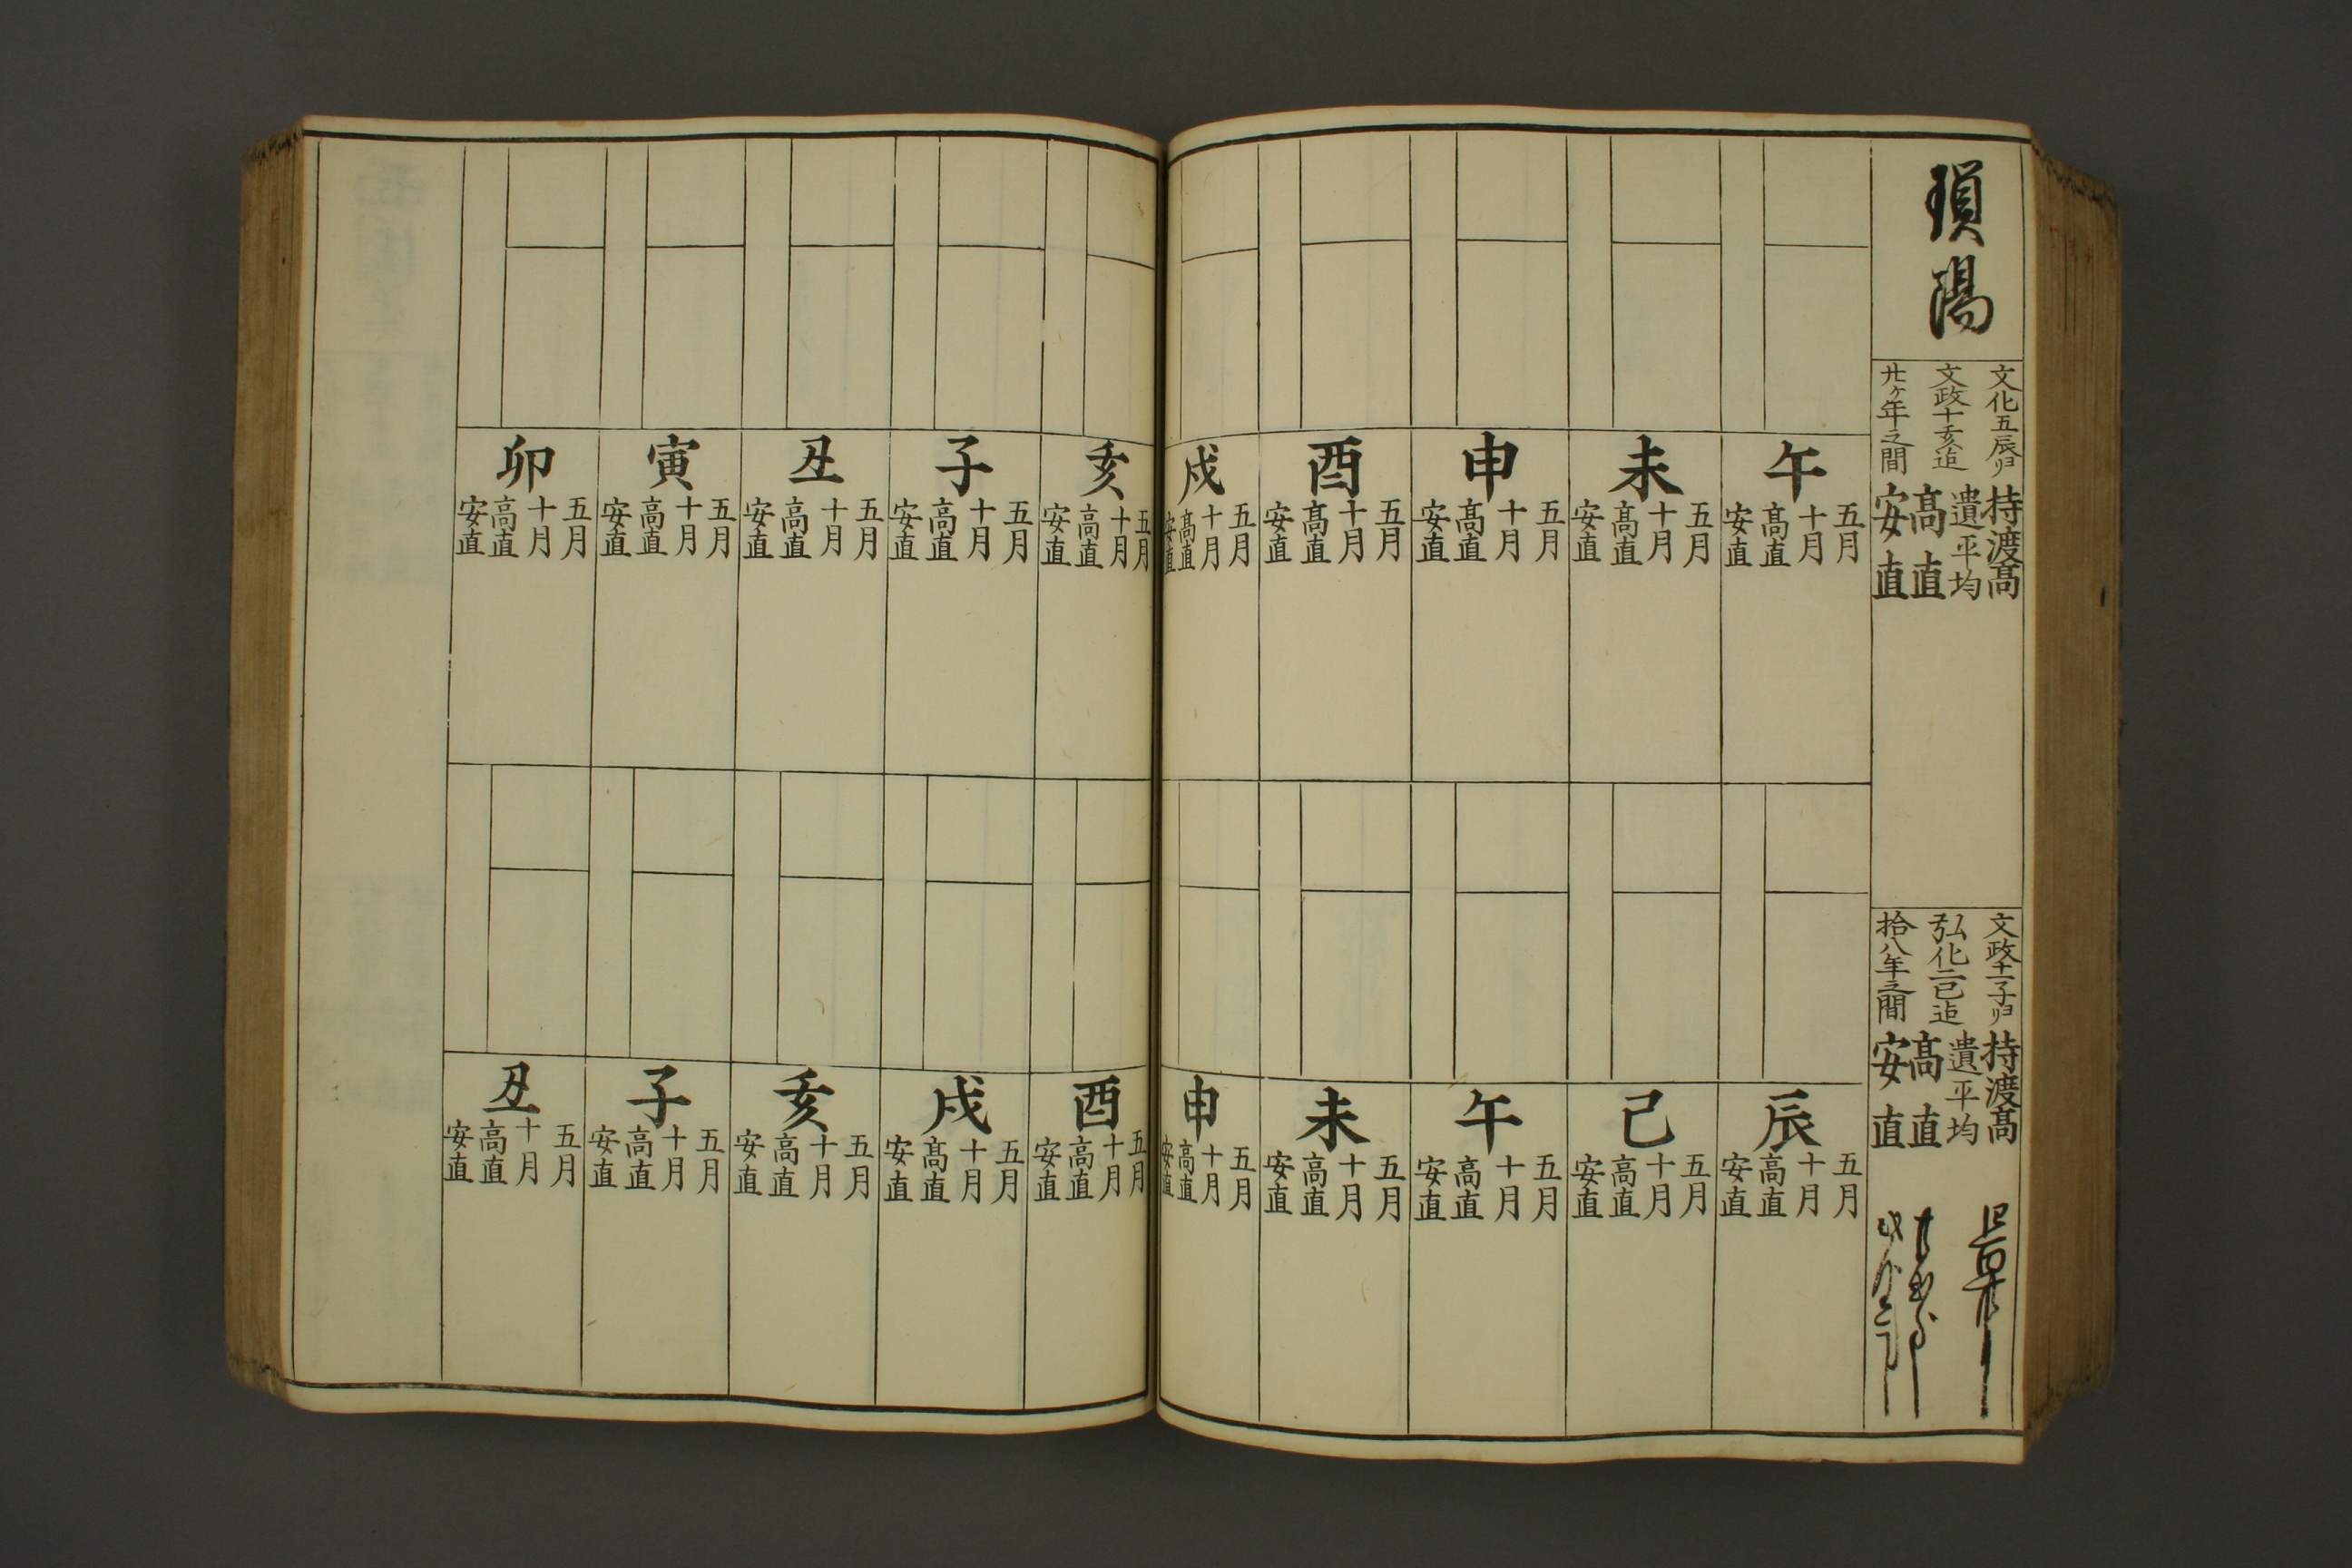 瑣陽
文化五辰ヨリ
文政十亥迠
廿ヶ年之間
持渡髙
遣平均
髙直
安直
文政十一子ヨリ
弘化二巳迠
拾八年之間
持渡髙
遣平均
髙直
安直
午
五月
十月
髙直
安直
未
五月
十月
髙直
安直
申
五月
十月
髙直
安直
酉
五月
十月
髙直
安直
戌
五月
十月
髙直
安直
辰
五月
十月
髙直
安直
己
五月
十月
髙直
安直
午
五月
十月
髙直
安直
未
五月
十月
髙直
安直
申
五月
十月
髙直
安直
亥
五月
十月
髙直
安直
子
五月
十月
髙直
安直
丑
五月
十月
髙直
安直
寅
五月
十月
髙直
安直
卯
五月
十月
髙直
安直
酉
五月
十月
髙直
安直
戌
五月
十月
髙直
安直
亥
五月
十月
髙直
安直
子
五月
十月
髙直
安直
丑
五月
十月
髙直
安直